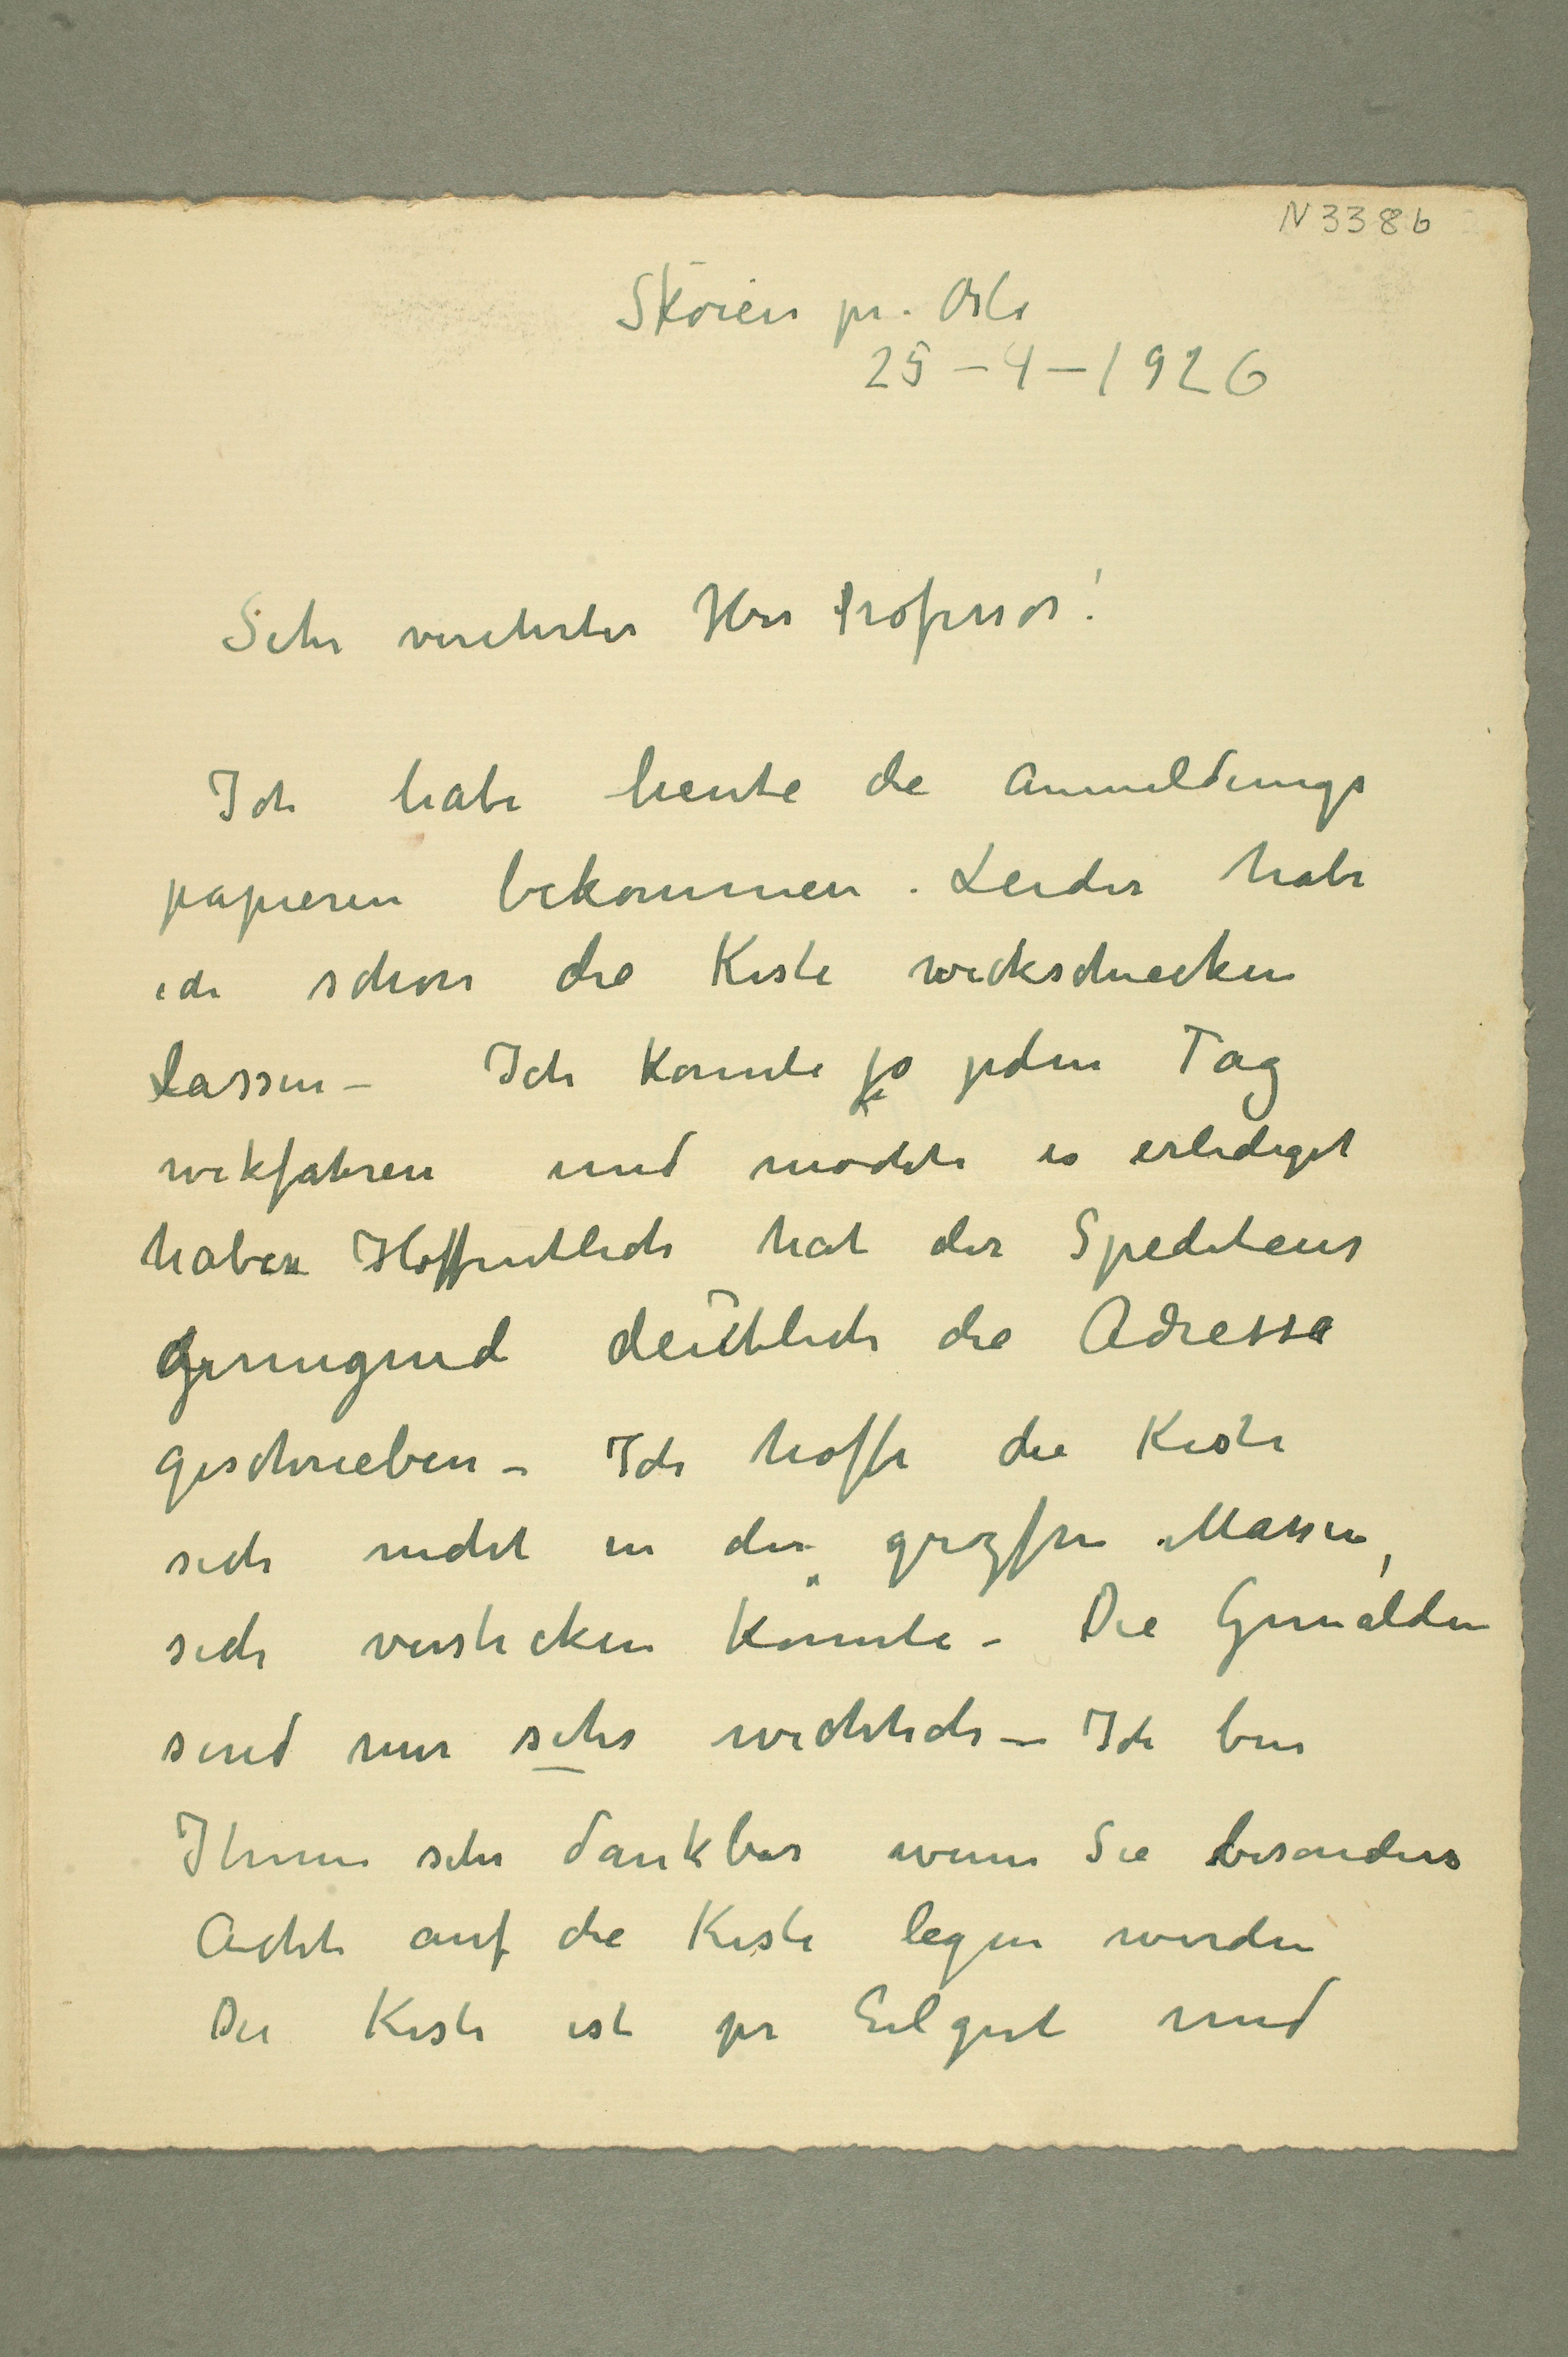 N 3386
Sköien pr. Oslo
25–4–1926
Sehr verehrter Herr Professor!
Ich habe heute die Anmeldungs
papieren bekommen. Leider habe
ich schon die Kiste weckschiecken
lassen – Ich konnte jo jeden Tag
wekfahren und möchte es erlediget
haben Hoffentlich hat der Spediteur
genugend deutlich die Adresse
geschrieben – Ich hoffe die Kiste
sich nicht in der Massen,
sich verstecken könnte – Die Gemälden
sind mir sehr wichtich – Ich bin
Ihnen sehr dankbar wenn Sie besonders
Acht auf die Kiste legen werden
Die Kiste ist pr Eilgut und